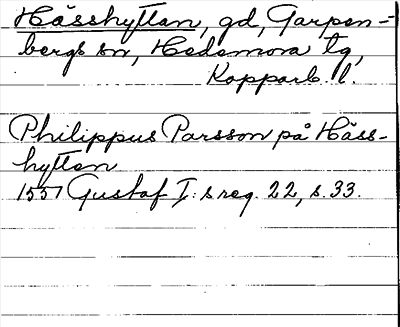 Hässhyttan, gd, Garpen-
bergs sn, Hedemora tg,
Kopparb. l.
Philippus Parsson på Häss-
hyttan
1557 Gustaf I:s reg. 22, s. 33.